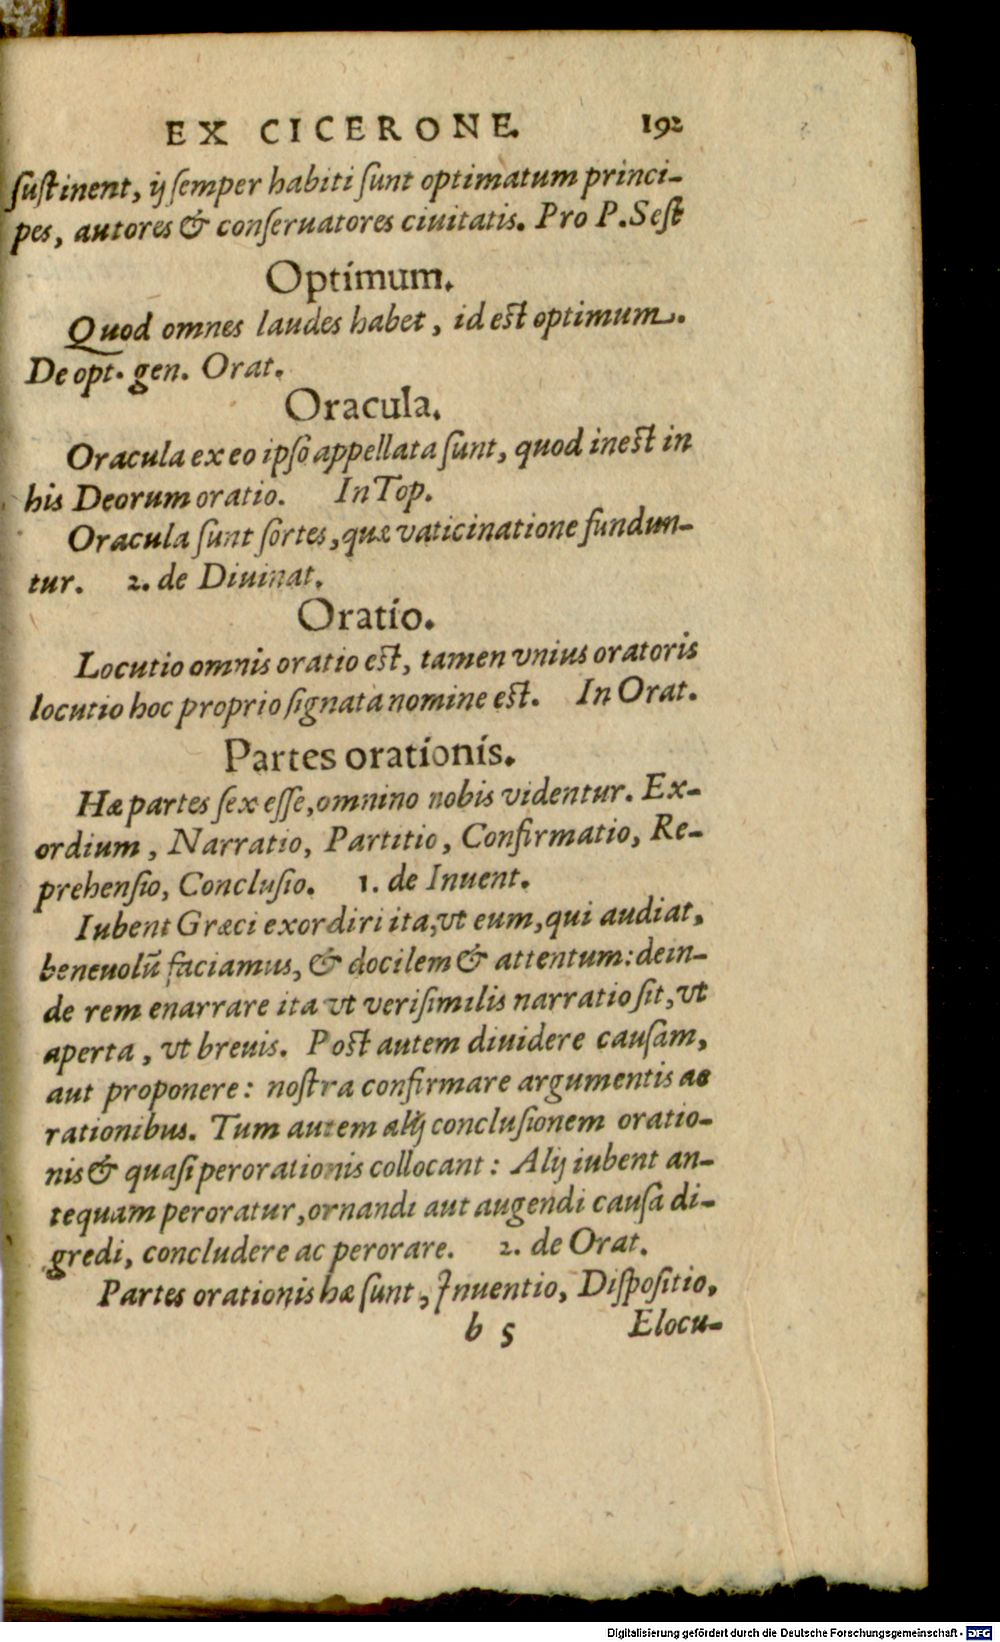 EX CICERONE. 192
ſuſtinent, ij ſemper habiti ſunt optimatum princi-
pes, autores & conſeruatores ciuitatis. Pro P. Seſt
Optimum.
Quod omnes laudes habet, id eſt optimum.
De opt. gen. Orat.
Oracula.
Oracula ex eo ipſo appellata ſunt, quod ineſt in
his Deorum oratio. In Top.
Oracula ſunt ſortes, quæ vaticinatione fundun-
tur. 2. de Diuinat.
Oratio.
Locutio omnis oratio eſt, tamen vnius oratoris
locutio hoc proprio ſignata nomine eſt. In Orat.
Partes orationis.
Hæ partes ſex eſſe, omnino nobis videntur. Ex-
ordium, Narratio, Partitio, Confirmatio, Re-
prehenſio, Concluſio. 1. de Inuent.
Iubent Græci exordiri ita, vt eum, qui audiat,
beneuolũ faciamus, & docilem & attentum: dein-
de rem enarrare ita vt veriſimilis narratio ſit, vt
aperta, vt breuis. Poſt autem diuidere cauſam,
aut proponere: noſtra confirmare argumentis ac
rationibus. Tum autem alij concluſionem oratio-
nis & quaſi perorationis collocant: Alij iubent an-
tequam peroratur, ornandi aut augendi cauſa di-
gredi, concludere ac perorare. 2. de Orat.
Partes orationis hæ ſunt, Inuentio, Diſpoſitio,
b 5 Elocu-
Digitalisierung gefördert durch die Deutsche Forschungsgemeinschaft - DFG